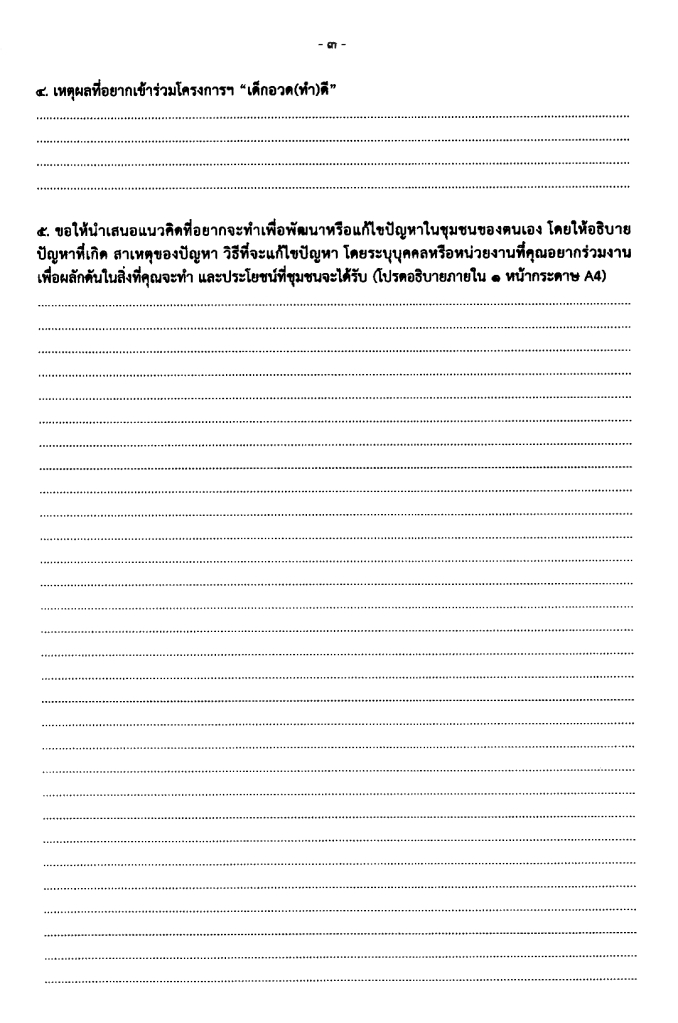 - ๓ -
๔. เหตุผลที่อยากเข้าร่วมโครงการฯ “เด็กอวด(ทำ)ดี”
๕. ขอให้นำเสนอแนวคิดที่อยากจะทำเพื่อพัฒนาหรือแก้ไขปัญหาในชุมชนของตนเอง โดยให้อธิบาย
ปัญหาที่เกิด สาเหตุของปัญหา วิธีที่จะแก้ไขปัญหา โดยระบุบุคคลหรือหน่วยงานที่คุณอยากร่วมงาน
เพื่อผลักดันในสิ่งที่คุณจะทำ และประโยชน์ที่ชุมชนจะได้รับ (โปรดอธิบายภายใน ๑ หน้ากระดาษ A4)